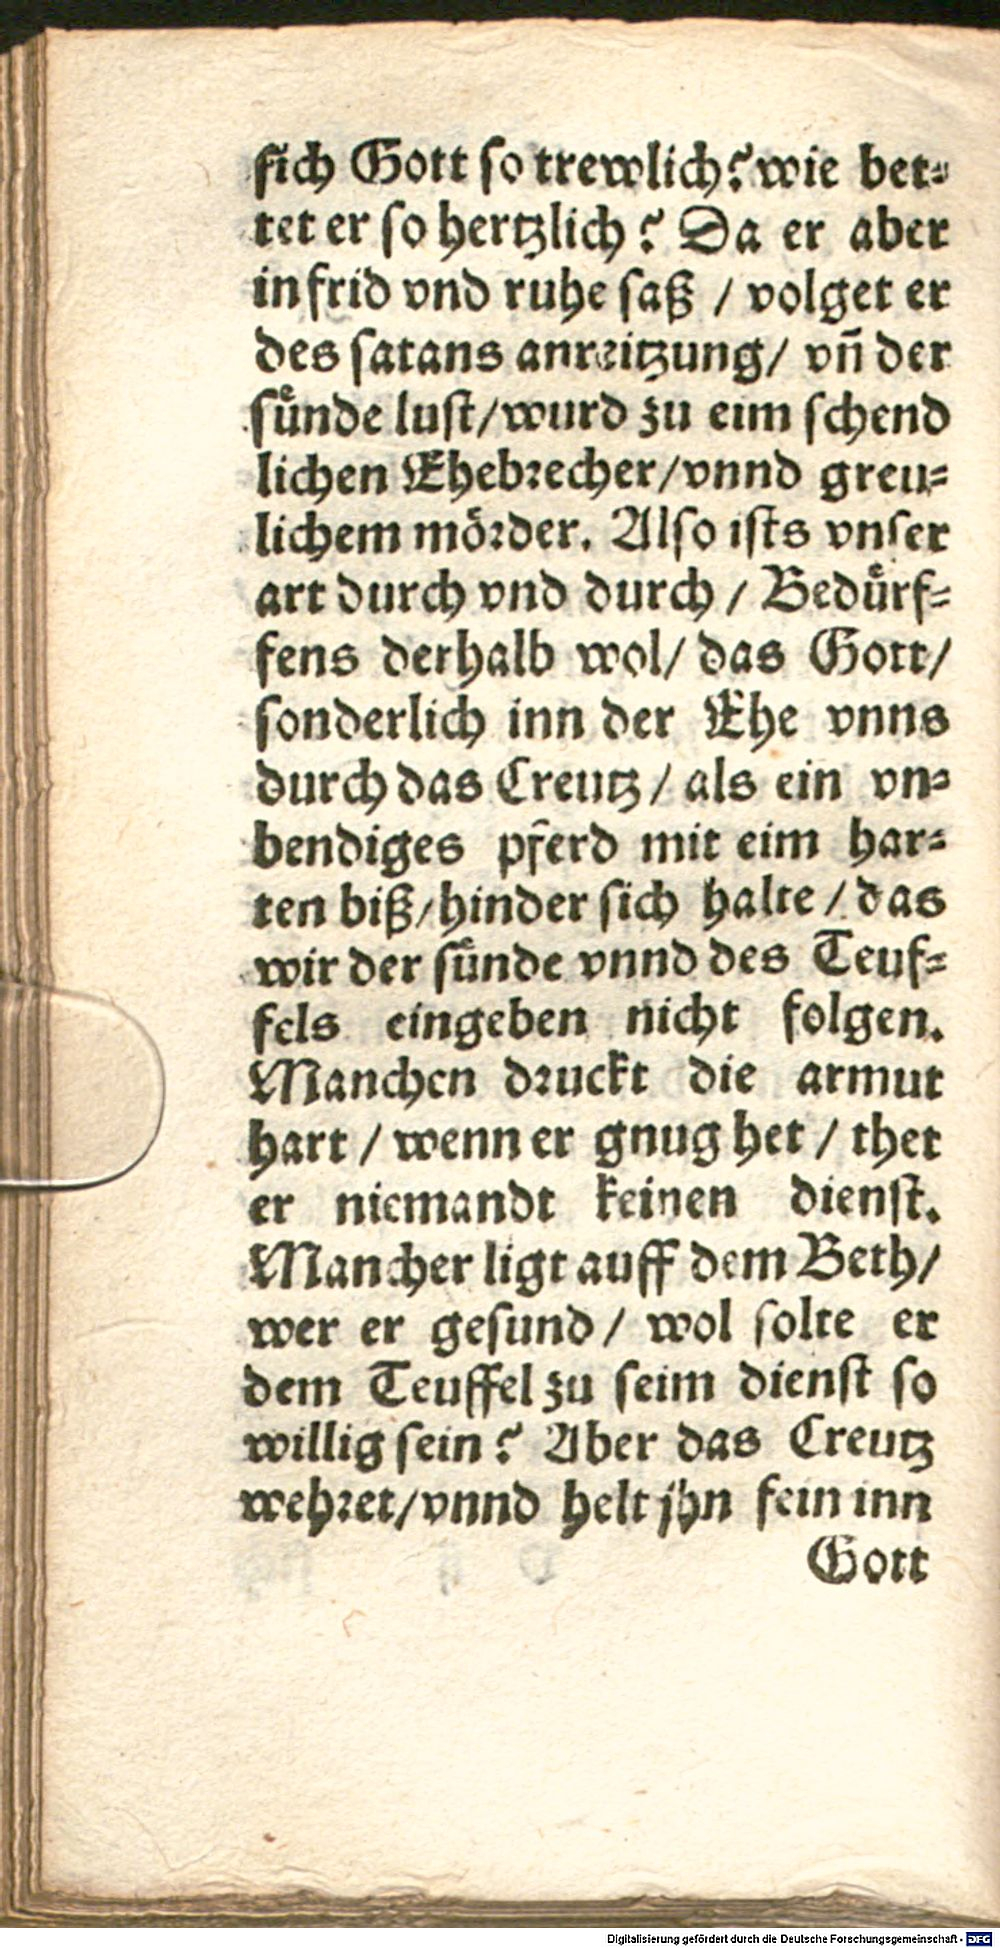 sich Gott so trewlich? wie bet⸗
tet er so hertzlich? Da er aber
in frid vnd ruhe saß / volget er
des satans anreitzung / vn̄ der
sünde lust / wurd zu eim schend
lichen Ehebrecher / vnnd greu⸗
lichem mörder. Also ists vnser
art durch vnd durch / Bedürf⸗
fens derhalb wol / das Gott /
sonderlich inn der Ehe vnns
durch das Creutz / als ein vn⸗
bendiges pferd mit eim har⸗
ten biß / hinder sich halte / das
wir der sünde vnnd des Teuf⸗
fels eingeben nicht folgen.
Manchen druckt die armut
hart / wenn er gnug het / thet
er niemandt keinen dienst.
Mancher ligt auff dem Beth /
wer er gesund / wol solte er
dem Teuffel zu seim dienst so
willig sein? Aber das Creutz
wehret / vnnd helt jhn fein inn
Gott
Digitalisierung gefördert durch die Deutsche Forschungsgemeinschaft - DFG